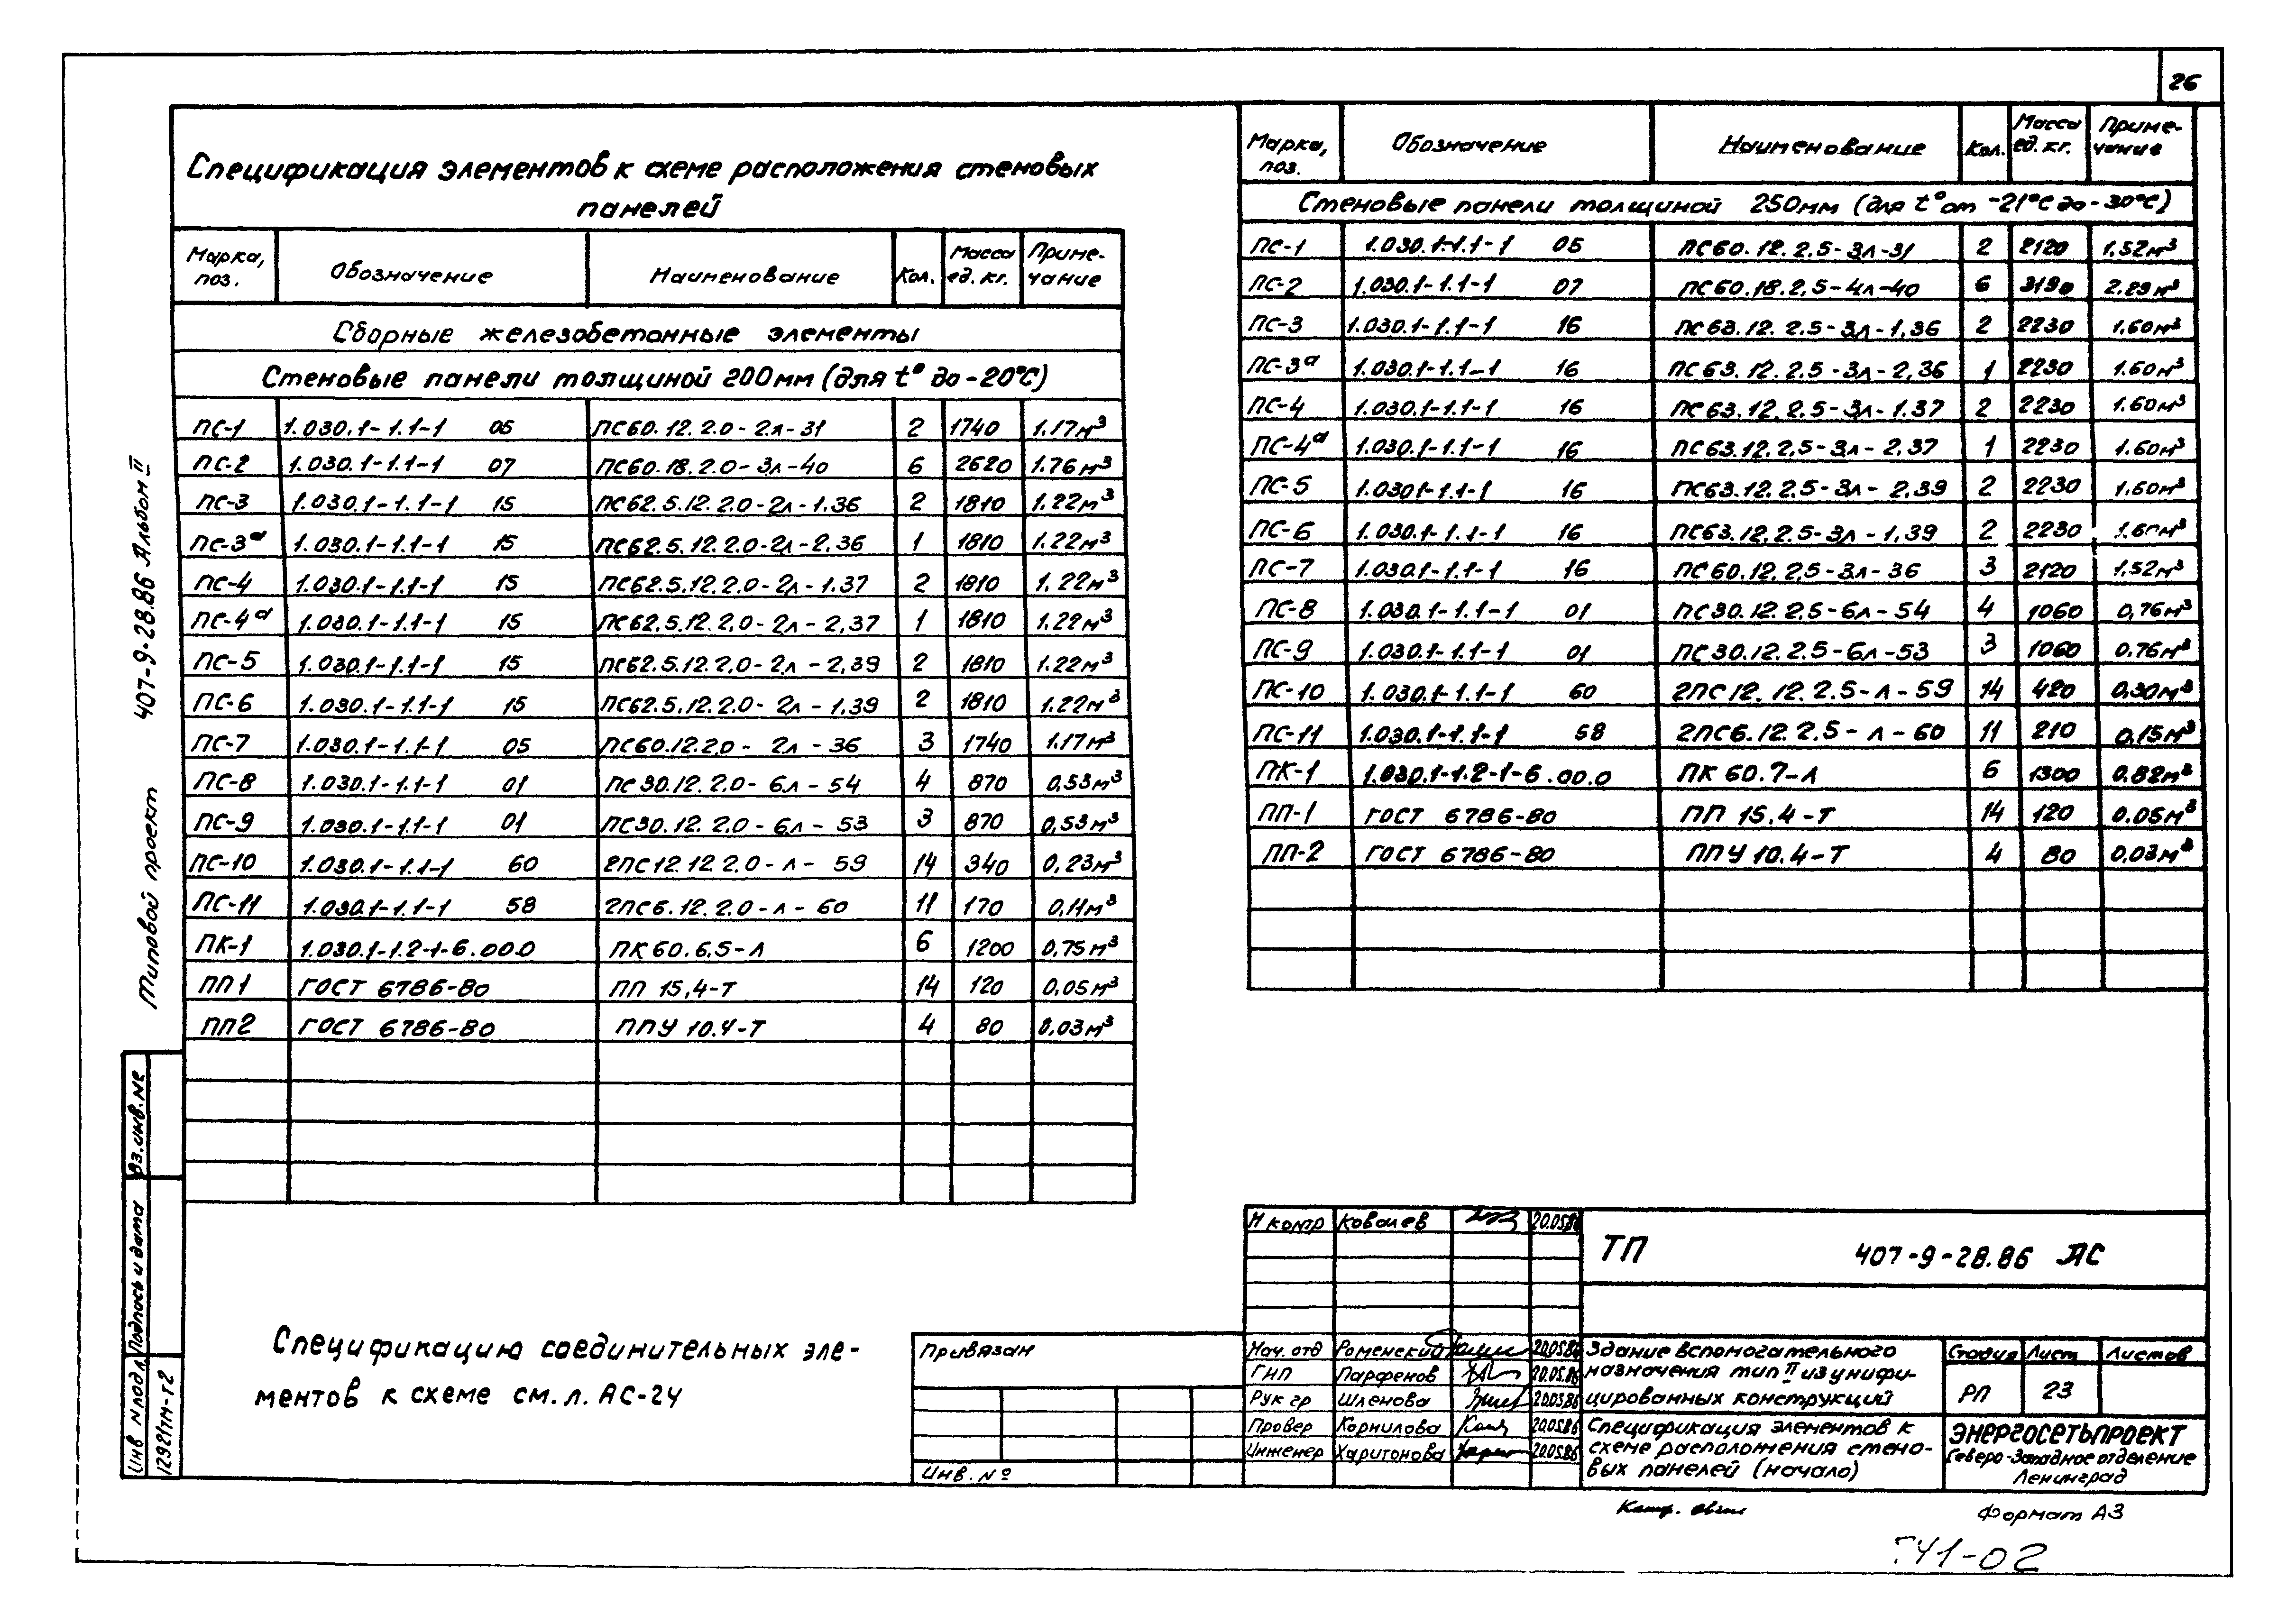 26
Спецификация элементов к схеме расположения стеновых
панелей
Марка, поз. Обозначение Наименование Кол. Масса ед. кг. Приме-чание
Сборные железобетонные элементы
Стеновые панели толщиной 200мм (для t° до -20°С)
ПС-1 1.030.1-1.1-1 05 ПС60.12.2.0-2л-31 2 1740 1.17м³
ПС-2 1.030.1-1.1-1 07 ПС60.18.2.0-3л-40 6 2620 1.76м³
ПС-3 1.030.1-1.1-1 15 ПС62.5.12.2.0-2л-1.36 2 1810 1.22м³
ПС-3а 1.030.1-1.1-1 15 ПС62.5.12.2.0-2л-2.36 1 1810 1.22м³
ПС-4 1.030.1-1.1-1 15 ПС62.5.12.2.0-2л-1.37 2 1810 1.22м³
ПС-4а 1.030.1-1.1-1 15 ПС62.5.12.2.0-2л-2.37 1 1810 1.22м³
ПС-5 1.030.1-1.1-1 15 ПС62.5.12.2.0-2л-2.39 2 1810 1.22м³
ПС-6 1.030.1-1.1-1 15 ПС62.5.12.2.0-2л-1.39 2 1810 1.22м³
ПС-7 1.030.1-1.1-1 05 ПС60.12.2.0-2л-36 3 1740 1.17м³
ПС-8 1.030.1-1.1-1 01 ПС30.12.2.0-6л-54 4 870 0,53м³
ПС-9 1.030.1-1.1-1 01 ПС30.12.2.0-6л-53 3 870 0,53м³
ПС-10 1.030.1-1.1-1 60 2ПС12.12.2.0-л-59 14 340 0,23м³
ПС-11 1.030.1-1.1-1 58 2ПС6.12.2.0-л-60 11 170 0,11м³
ПК-1 1.030.1-1.2-1-6.00.0 ПК60.6,5-Л 6 1200 0,75м³
ПП1 ГОСТ 6786-80 ПП 15,4-Т 14 120 0,05м³
ПП2 ГОСТ 6786-80 ППУ 10.4-Т 4 80 0,03м³
Марка, поз. Обозначение Наименование Кол. Масса ед. кг. Приме-чание
Стеновые панели толщиной 250мм (для t° от -21°С до -30°С)
ПС-1 1.030.1-1.1-1 05 ПС60.12.2.5-3л-31 2 2120 1.52м³
ПС-2 1.030.1-1.1-1 07 ПС60.18.2.5-4л-40 6 3190 2.29м³
ПС-3 1.030.1-1.1-1 16 ПС63.12.2.5-3л-1.36 2 2230 1.60м³
ПС-3а 1.030.1-1.1-1 16 ПС63.12.2.5-3л-2.36 1 2230 1.60м³
ПС-4 1.030.1-1.1-1 16 ПС63.12.2.5-3л-1.37 2 2230 1.60м³
ПС-4а 1.030.1-1.1-1 16 ПС63.12.2.5-3л-2.37 1 2230 1.60м³
ПС-5 1.030.1-1.1-1 16 ПС63.12.2.5-3л-2.39 2 2230 1.60м³
ПС-6 1.030.1-1.1-1 16 ПС63.12.2.5-3л-1.39 2 2230 1.60м³
ПС-7 1.030.1-1.1-1 16 ПС60.12.2.5-3л-36 3 2120 1.52м³
ПС-8 1.030.1-1.1-1 01 ПС30.12.2.5-6л-54 4 1060 0,76м³
ПС-9 1.030.1-1.1-1 01 ПС30.12.2.5-6л-53 3 1060 0.76м³
ПС-10 1.030.1-1.1-1 60 2ПС12.12.2.5-л-59 14 420 0,30м³
ПС-11 1.030.1-1.1-1 58 2ПС6.12.2.5-л-60 11 210 0,15м³
ПК-1 1.030.1-1.2-1-6.00.0 ПК 60.7-Л 6 1300 0.82м³
ПП-1 ГОСТ 6786-80 ПП 15.4-Т 14 120 0.05м³
ПП-2 ГОСТ 6786-80 ППУ 10.4-Т 4 80 0,03м³
Типовой проект 407-9-28.86 Альбом II
Вз.инв.№
Подпись и дата
Инв № подл
12921тм-т2
Спецификацию соединительных эле-
ментов к схеме см.л. АС-24
Привязан
Инв. №
Н контр Ковалев 20.05.86
Нач. отд Роменский 20.05.86
ГИП Парфенов 20.05.86
Рук гр Шленова 20.05.86
Провер Корнилова 20.05.86
Инженер Харитонова 20.05.86
ТП 407-9-28.86 АС
Здание вспомогательного
назначения тип II из унифи-
цированных конструкций
Стадия Лист Листов
РП 23
Спецификация элементов к
схеме расположения стено-
вых панелей (начало)
ЭНЕРГОСЕТЬПРОЕКТ
Северо-Западное отделение
Ленинград
Формат А3
41-02